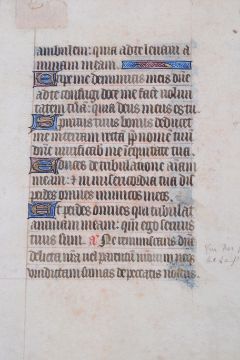 ambulem: quia ad te levavi a
nimam meam.
Eripe me de inimicis meis dn̄e
ad te confugi doce me facē volūn
tatem tuā: quia deus meus es tu.
Spiritus tuus bonus deducet
me in terram rectā ꝓp̄ nomē tuū
dn̄e vivificabis me in equitate tua.
Educes de tribulatione aīam
meam: ⁊ in misericordia tua dis
perdes omnes inimicos meos.
Et perdes omnes qui tribulāt
animam meam: qm̄ ego servus
tuus sum. a͞. Ne reminiscaris dn̄e
delicta nr̄a vel parentū nr̄orum neqꝫ
vindictam sumas de peccatis nostris.